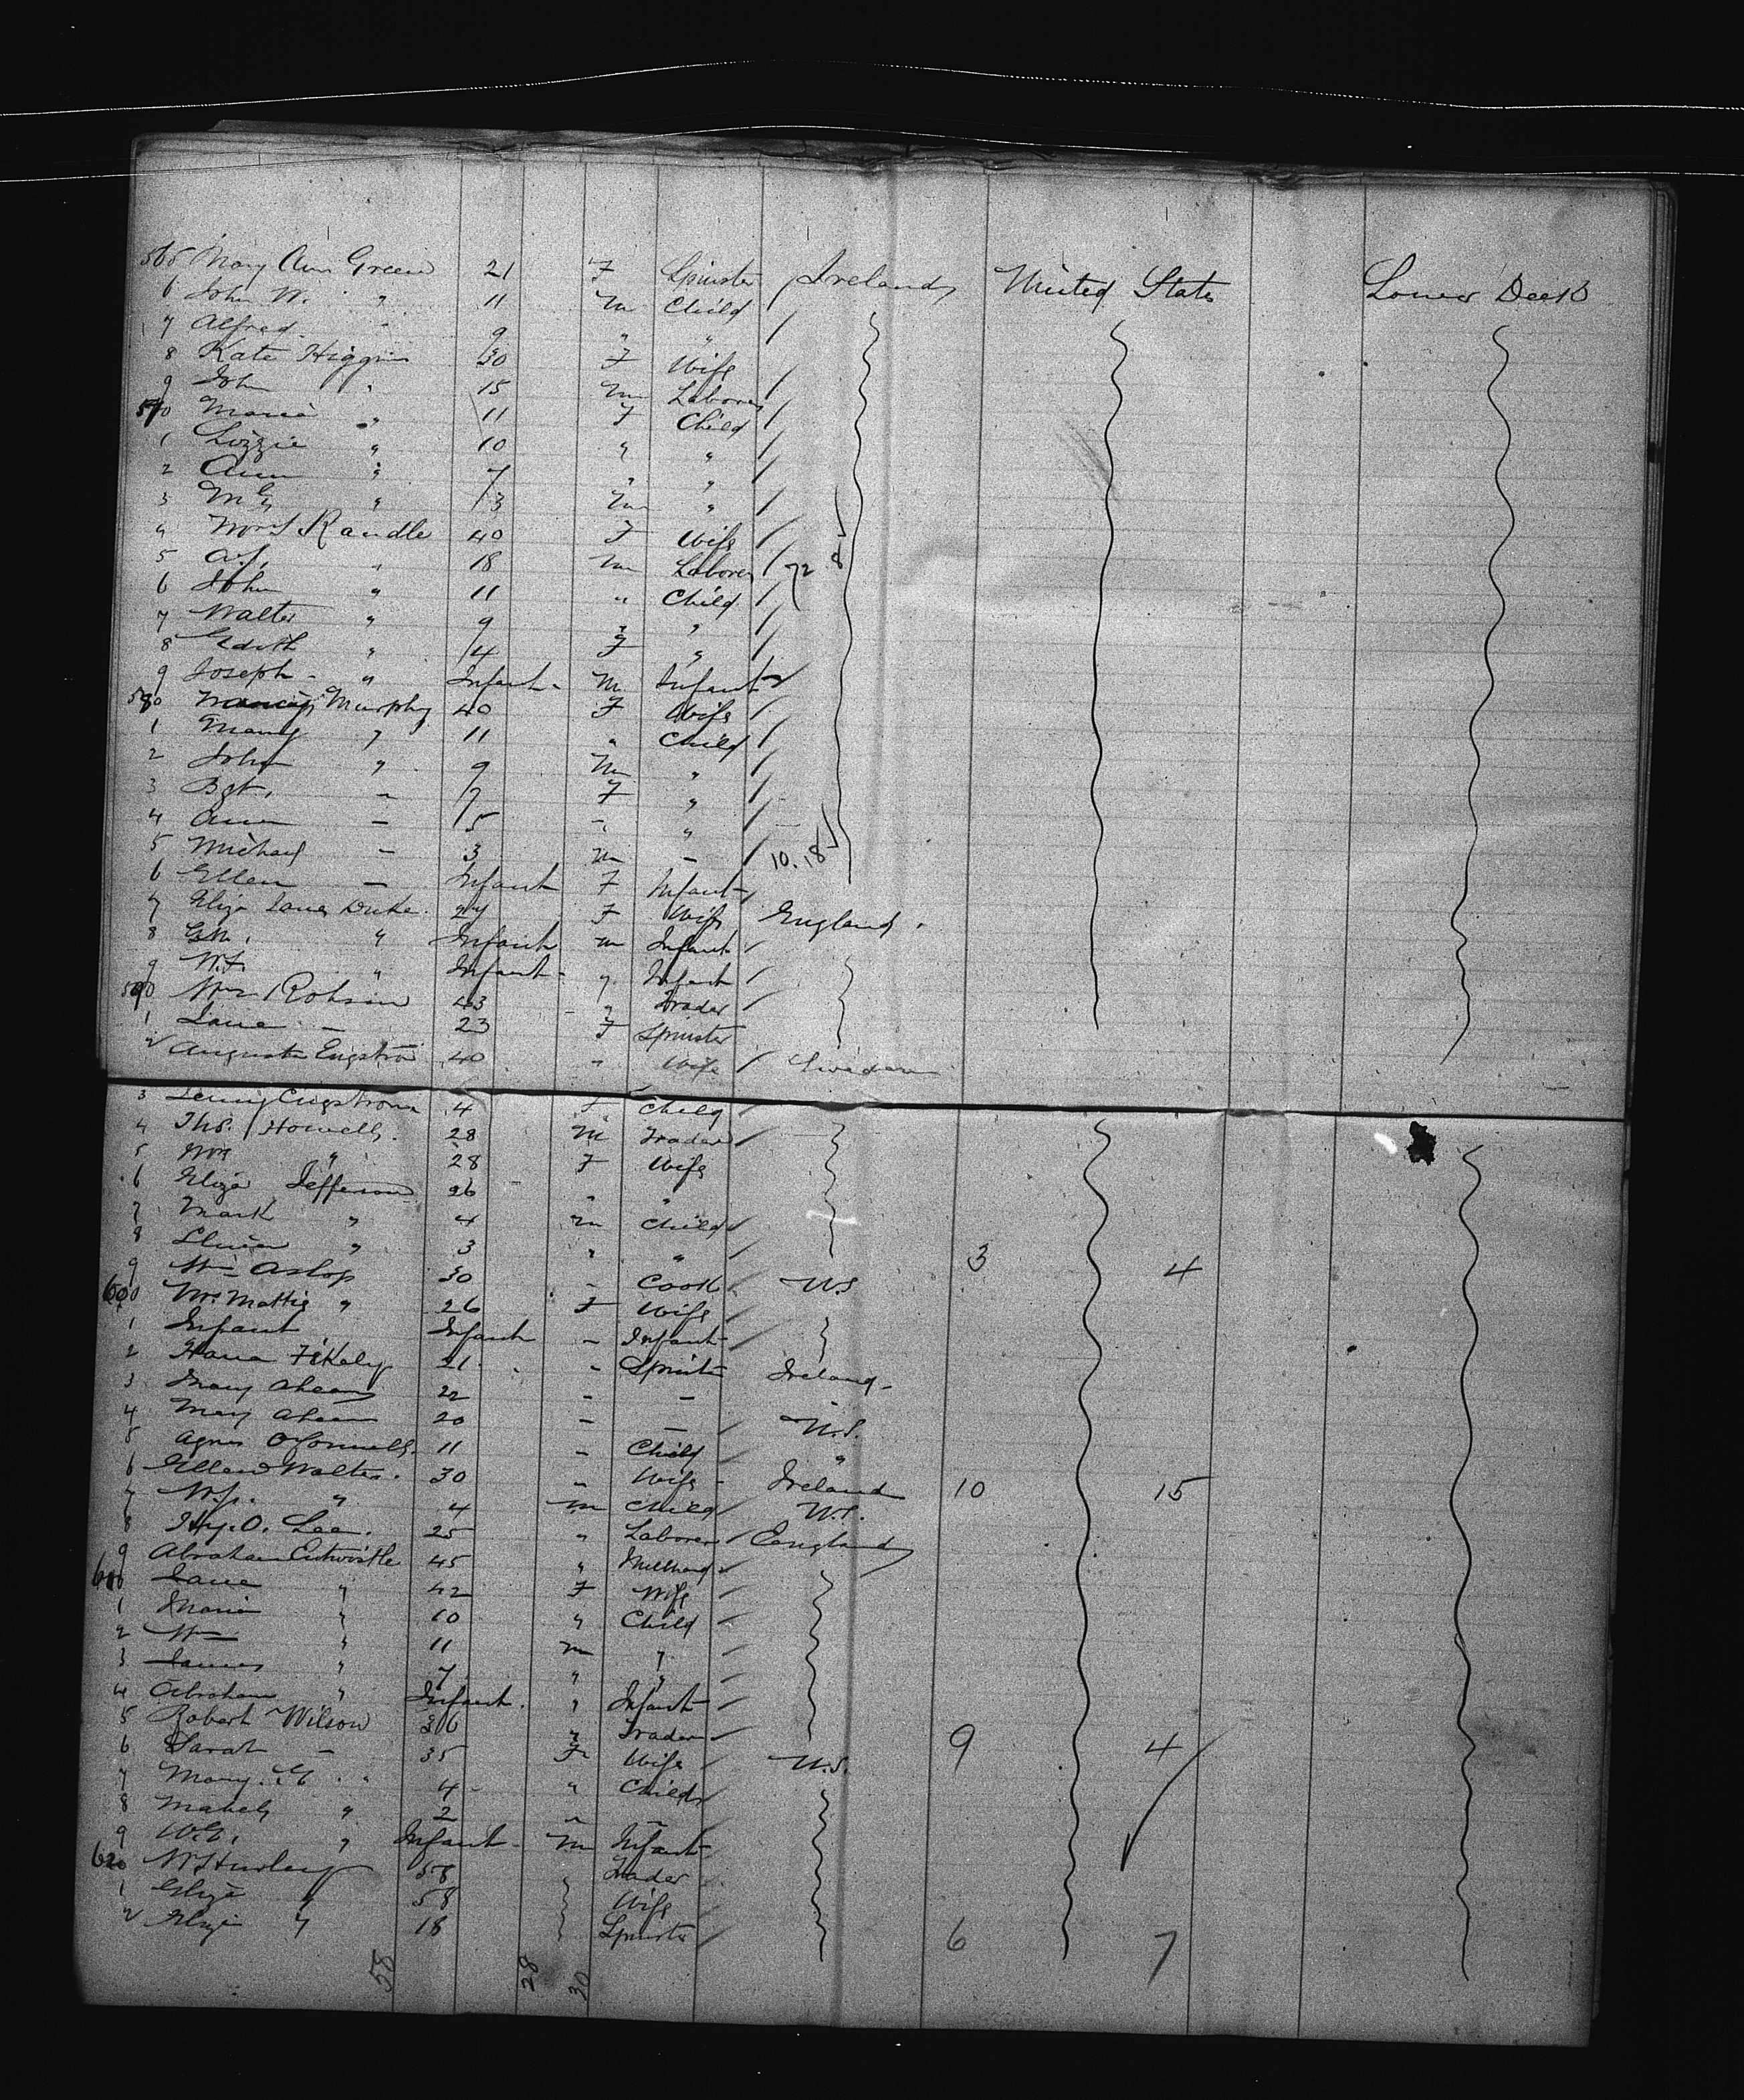 565 Mary Ann Green 21 F Spinster Ireland United States Lower Deck
6 John W. " 11 m Child
7 Alfred " 9 " "
8 Kate Higgins 30 F Wife
9 John " 15 m Laborer
570 Maria " 11 F Child
1 Lizzie " 10 " "
2 Ann " 7 " "
3 " 3 m "
4 Randle 40 F Wife
5 " 18 m Laborer 72 8
6 John " 11 " Child
7 Walter " 9 " "
8 Edith " 4 F "
9 Joseph " Infant m Infant
580 Murphy 40 F Wife
1 Mary " 11 " Child
2 John " 9 m "
3 Bgt. " 7 F "
4 Ann " 5 " "
5 Michael " 3 m " 10.18
6 Ellen " Infant F Infant
7 Eliza Jane Duke 27 F Wife England
8 G.M. " Infant m Infant
9 W.F. " Infant " Infant
590 Wm Robson 43 " Trader
1 Jane " 23 F Spinster
2 Augusta Engstrom 40 " Wife Sweden
3 Engstrom 4 F Child
4 Ths. Howells 28 m Trader
5 Mrs " 28 F Wife
6 Eliza Jefferson 26 " "
7 Mark " 4 m Child
8 " 3 " " 3 4
9 Wm Aslop 30 " Cook U.S
600 Mrs Mattie " 26 F Wife
1 Infant Infant " Infant
2 21 " Spinster Ireland
3 Mary Ahearn 22 " "
4 Mary Ahearn 20 " " U.S.
5 Agnes O'Connell 11 " Child "
6 Ellen Walter 30 " Wife Ireland 10 15
7 W.J. " 4 m Child U.S.
8 Hy. O. Lee 25 " Laborer England
9 Abraham Entwistle 45 " Millhand
610 Jane " 42 F Wife
1 Maria " 10 " Child
2 Wm " 11 m "
3 James " 7 " "
4 Abraham " Infant " Infant
5 Robert Wilson 36 " Trader
6 Sarah " 35 F Wife U.S. 9 4
7 Mary. E. " 4 " Child
8 Mabel " 2 " "
9 W.G. " Infant m Infant
620 W Hurley 58 " Trader
1 Eliza " 58 Wife
2 Eliza " 18 Spinster 6 7
58 28 30